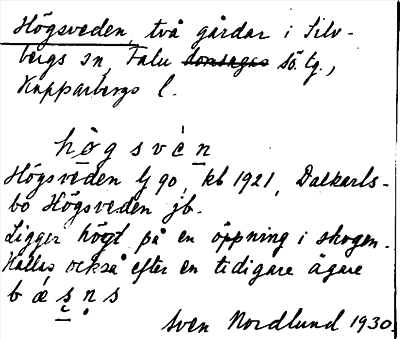 Högsveden, två gårdar i Silv-
bergs sn, Falu domsagas sö. tg.,
Kopparbergs l.
hògsvèn
Högsveden lj 90, kb 1921, Dalkarls-
bo Högsveden jb.
Ligger högt på en öppning i skogen.
Kallas också efter en tidigare ägare
b sns
Sven Nordlund 1930.